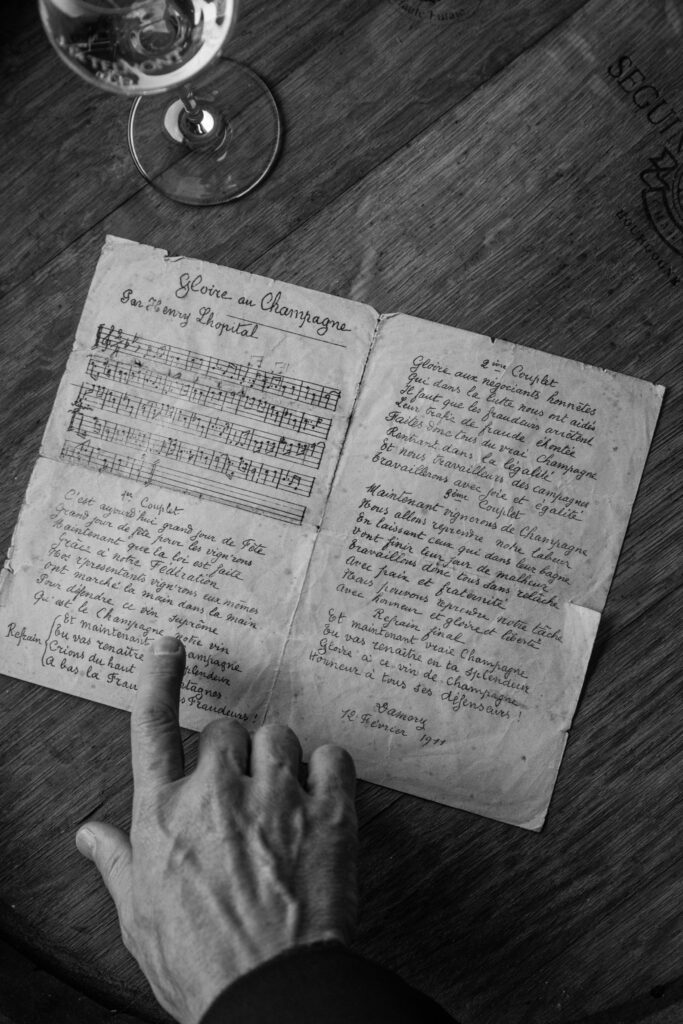 TELMONT
Haute Futaie
SEGUIN
BOURGOGNE
Gloire au Champagne
Par Henry Lhopital
1er Couplet
C'est aujourd'hui grand jour de Fête
Grand jour de fête pour les vignerons
Maintenant que la loi est faite
Grâce à notre Fédération
Nos représentants vignerons eux mêmes
Ont marché la main dans la main
Pour défendre ce vin suprême
Qu'est le Champagne notre vin
Refrain
Et maintenant Champagne
Tu vas renaître splendeur
Crions du haut montagnes
A bas la Frau es Fraudeurs !
2ème Couplet
Gloire aux négociants honnêtes
Qui dans la lutte nous ont aidés
Il faut que les fraudeurs arrêtent
Leur trafic de fraude éhontée
Faites donc tous du vrai Champagne
Rentrant dans la légalité
Et nous travailleurs des campagnes
Travaillerons avec joie et égalité
3ème Couplet
Maintenant vignerons de Champagne
Nous allons reprendre notre labeur
En laissant ceux qui dans leur bagne
Vont finir leur jour de malheur
Travaillons donc tous sans relâche
Avec paix et fraternité
Nous pouvons reprendre notre tâche
Avec honneur et gloire et liberté
Refrain final
Et maintenant vraie Champagne
Tu vas renaître en ta splendeur
Gloire à ce vin de Champagne
Honneur à tous ses défenseurs !
Damery
12 Février 1911